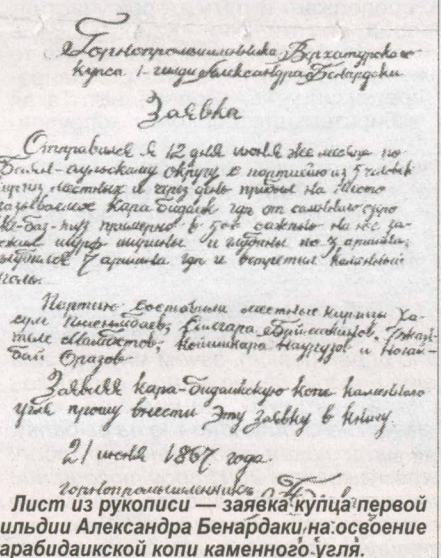 Горнопромышленника Верхотурского
купса 1-гилди Александра Бенардаки
Заявка
Отправился я 12 дня июня же месяца по
округу с партиею из 5 человек
местных и через день прибыл на место
называемое Кара бидаик где от соленого озера
примерно в 50х сажню на нес за-
ширины и глубины по 3 аршина,
7 аршина где и встретил каменный
уголь.
Партию составили местные киргизы Ха-
сул
Койшикара Наурузов и Нога-
бай Оразов
Заявляя кара-бидаикскую копи каменного
угля прошу внести эту заявку в книгу
21 июня 1867 года.
горнопромышленникъ
Лист из рукописи — заявка купца первой
ильдии Александра Бенардаки на освоение
арабидаикской копи каменного угля.